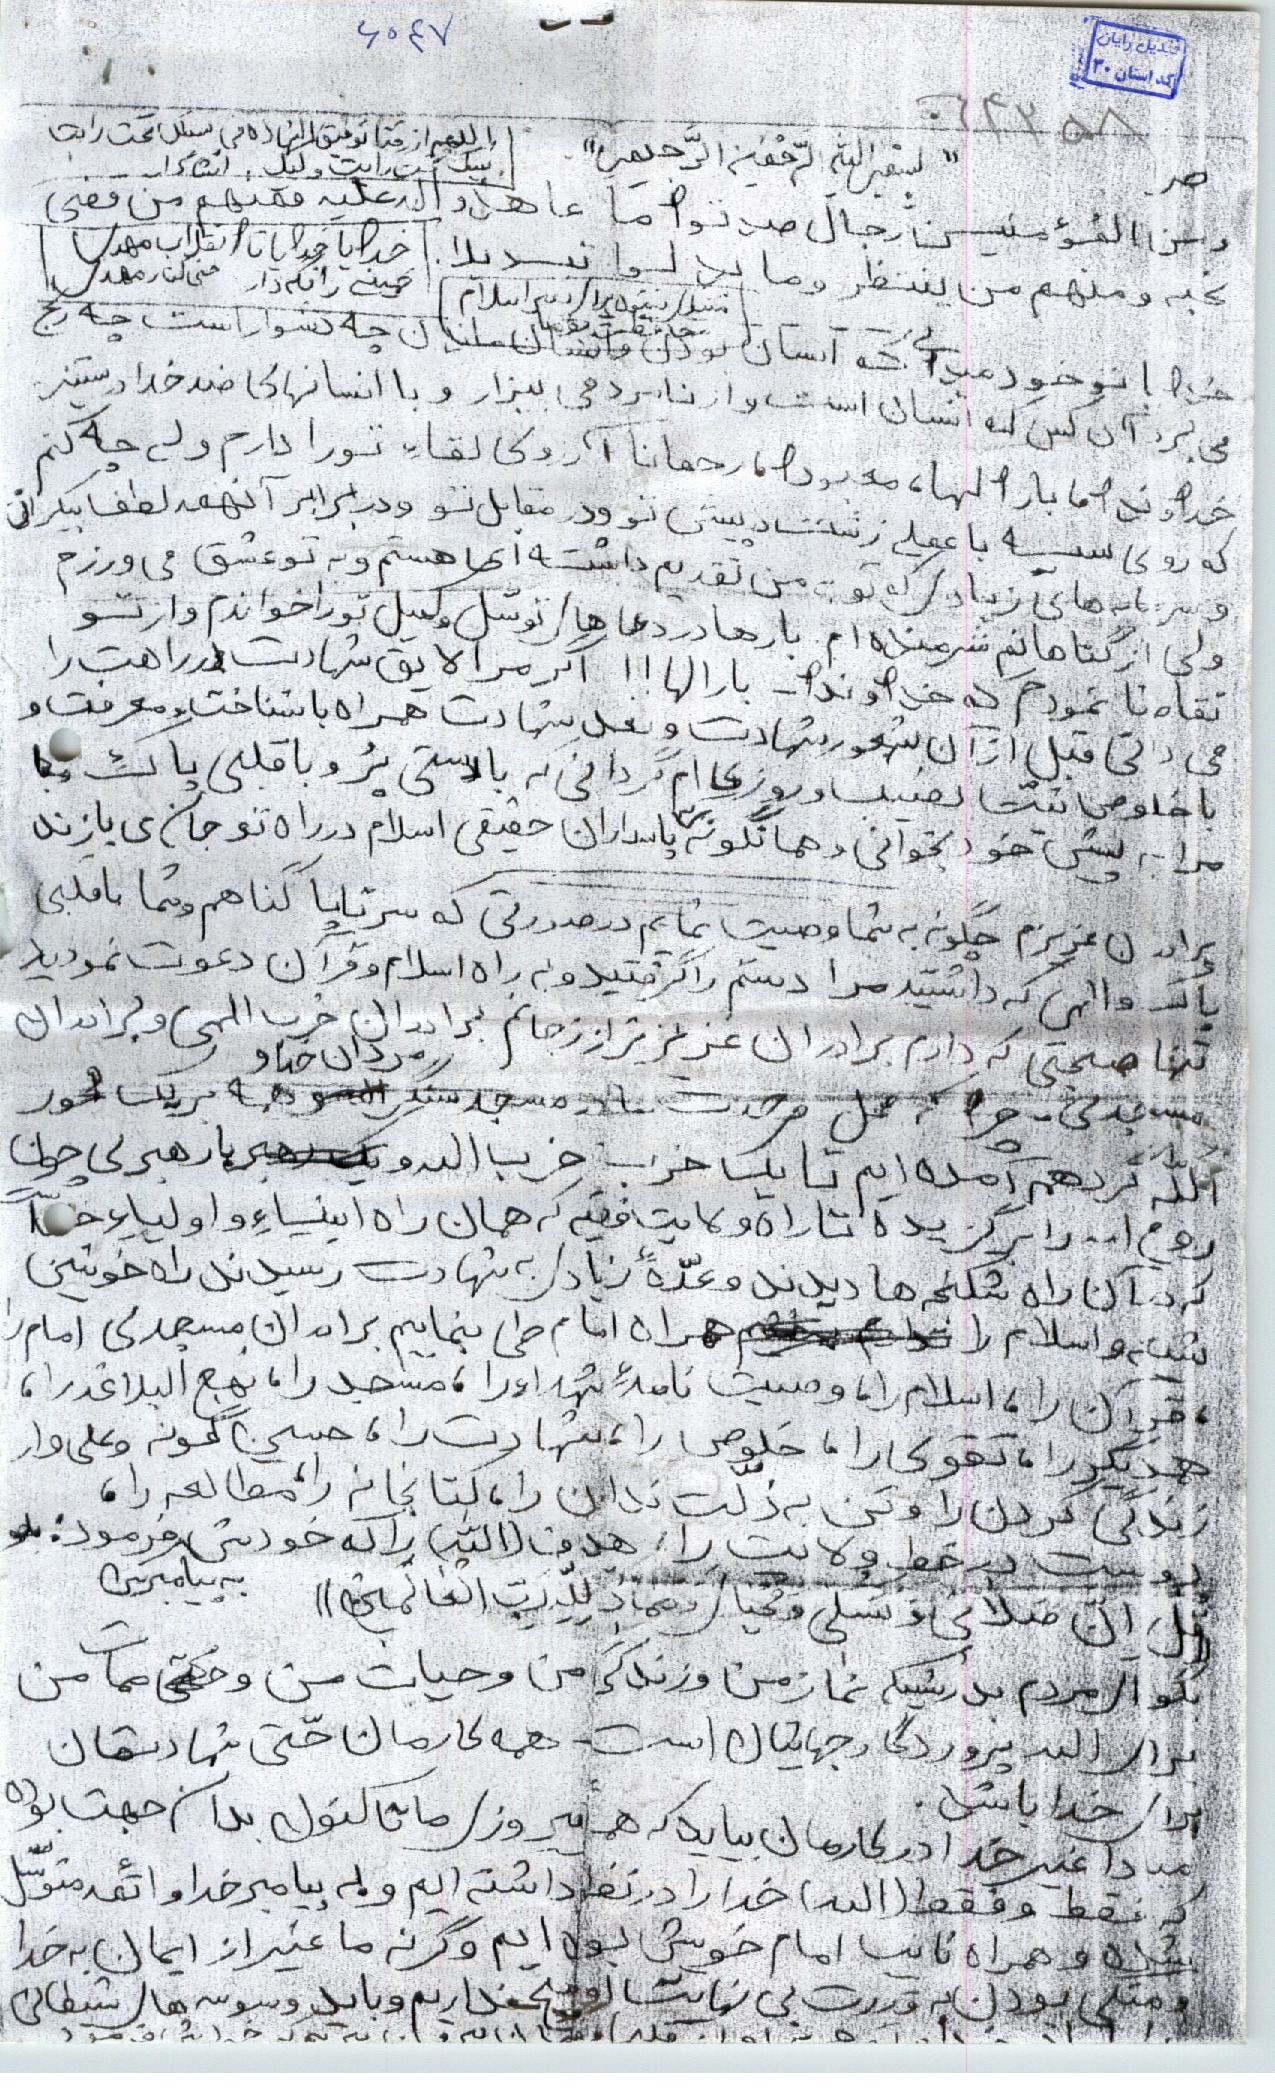 ۶۰۴۷
قندیل رایان
کد استان ۳۰
"بسم الله الرحمن الرحیم"
اللهم ارزقنا توفیق الشهادة فی سبیلک تحت رایت
نبیک و تحت رایت ولیک. انشاءالله
من المؤمنین رجال صدقوا ما عاهدوا الله علیه فمنهم من قضی
نحبه و منهم من ینتظر و ما بدلوا تبدیلا.
خدایا خدایا تا انقلاب مهدی
خمینی را نگه‌دار
خدایا تو خود میدانی که انسان بودن و انسان ماندن چه دشوار است چه رنج
می برد آن کس که انسان است و از نامردمی بیزار و با انسانهای ضد خدا در ستیز
خداوندا بارالها، معبودا، رحمانا آرزوی لقاء تو را دارم ولی چه کنم
که روی سیه با عملی زشت در پیش تو و در مقابل تو و در برابر آنهمه لطف بیکران
و سرمایه های زیادی که تو به من تقدیم داشته ای هستم و به تو عشق می ورزم
ولی از گناهانم شرمنده ام. بارها در دعاهای توسل و کمیل تو را خواندم و از تو
تقاضا نمودم که خداوندا بارالها!! اگر مرا لایق شهادت در راهت را
می دانی قبل از آن شعور شهادت و بعد شهادت همراه با شناخت و معرفت و
با خلوص نیت نصیب و روزی ام گردانی که با دستی پر و با قلبی پاک
مرا به پیش خود بخوانی و همانگونه که پاسداران حقیقی اسلام در راه تو جان می بازند
برادران عزیزم چگونه به شما وصیت نمایم در صورتی که سر تا پا گناهم و شما با قلبی
پاک و الهی که داشتید مرا دستم را گرفتید و به راه اسلام و قرآن دعوت نمودید
تنها صحبتی که دارم برادران عزیز عزیزتر از جانم برادران حزب الهی و برادران
مسجدی چرا که محل وحدت ما در مسجد سنگر مردان خدا و به گرد محور
الله گرد هم آمده ایم تا یک حزب حزب الله و با رهبری چون
روح الله را برگزیده تا راه ولایت فقیه که همان راه انبیاء و اولیاء خداست
که در آن راه شکنجه ها دیدند و عدّهٔ زیادی به شهادت رسیدند راه خونین
تشیع و اسلام را همراه امام طی بنماییم برادران مسجدی امام را
، قرآن را، اسلام را، وصیت نامهٔ شهداء را، مسجد را، نهج البلاغه را،
همدیگر را، تقوی را، خلوص را، شهادت را، حسین گونه و علی وار
زندگی کردن را و تن به ذلّت ندادن را، کتابخانه را، مطالعه را،
در خط ولایت را، هدف (الله) را که خودش فرمود: به پیامبرش
(قل ان صلاتی و نسکی و محیای و مماتی للّه رب العالمین))
بگو ای مردم بدرستیکه نماز من و زندگی من و حیات من و حتی ممات من
برای الله پروردگار جهانیان است. همه کارمان حتّی شهادتمان
برای خدا باشد.
مبادا غیر خدا در کارمان بیاید که هر پیروزی ما تاکنون بدان جهت بوده
که فقط و فقط (الله) خدا را در نظر داشته ایم و به پیامبر خدا و ائمه متوسّل
شده و همراه نایب امام خویش بوده ایم وگرنه ما غیر از ایمان به خدا
و متکی بودن به قدرت بی نهایت او هیچ نداریم و باید وسوسه های شیطانی